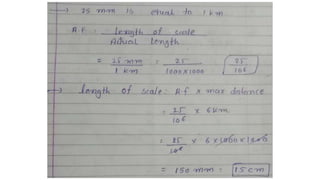 → 25 mm is equal to 1 km
R.F. : Length of scale
Actual length
= 25 mm = 25 25
1 km 1000×1000 10⁶
→ length of scale R.f × max distance
= 25 × 6km
10⁶
= 25 × 6×1000×1000
10⁶
= 150 mm : 15 cm